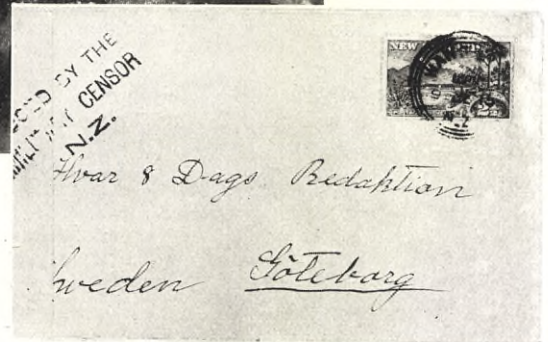 BY THE
CENSOR
N.Z.
NEW
Hvar 8 Dags Redaktion
Sweden Göteborg